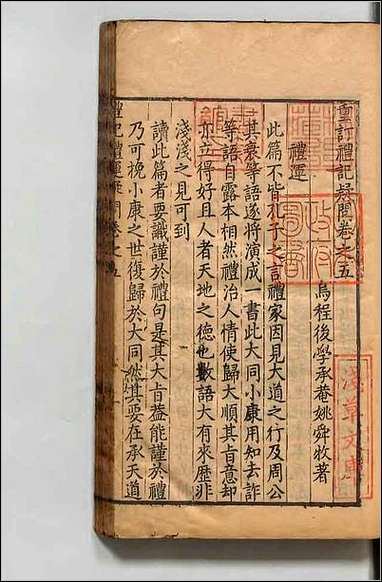 重訂禮記疑問卷之五
烏程後學承菴姚舜牧著
禮運
此篇不皆孔子之言禮家因見大道之行及周公
其衰等語遂將演成一書此大同小康用知去詐
等語自露本相然禮治人情使歸大順其旨意却
亦立得好且人者天地之德也數語大有來歷非
淺淺之見可到
讀此篇者要識謹於禮句是其大旨蓋能謹於禮
乃可挽小康之世復歸於大同然其要在承天道
禮記禮運疑問卷之五
淺草文庫